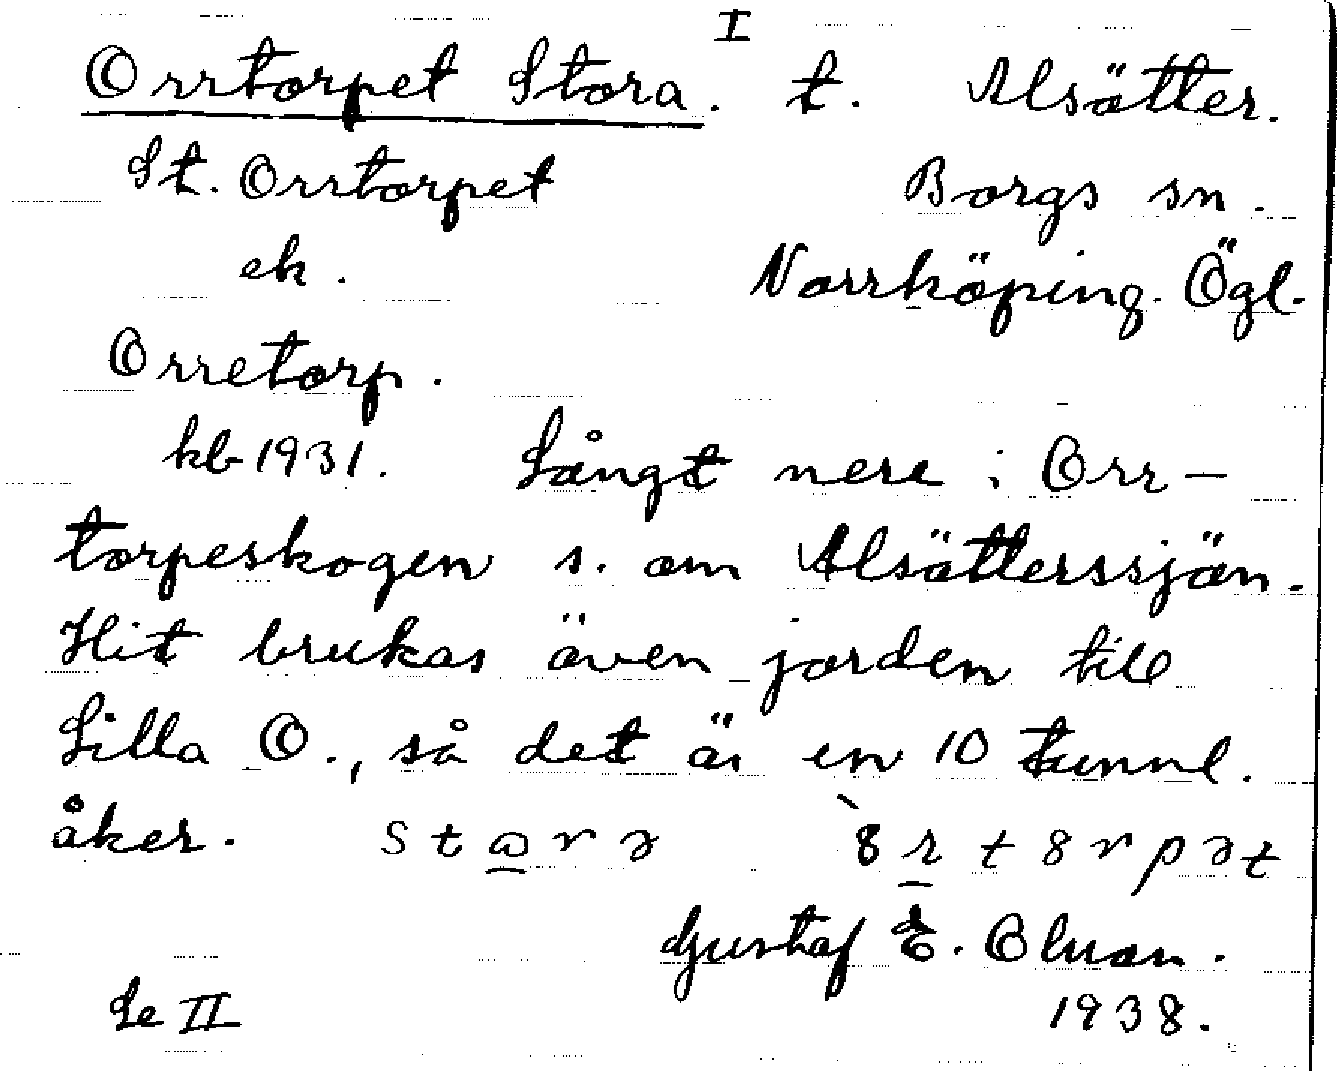 I
Orrtorpet Stora. t. Alsätter.
St. Orrtorpet Borgs sn.
ek. Norrköping. Ögl.
Orretorp.
kb 1931. Långt nere i Orr-
torpeskogen s. om Alsätterssjön.
Hit brukas även jorden till
Lilla O., så det är en 10 tunnl.
åker.
Gustaf E. Olson.
Se II 1938.